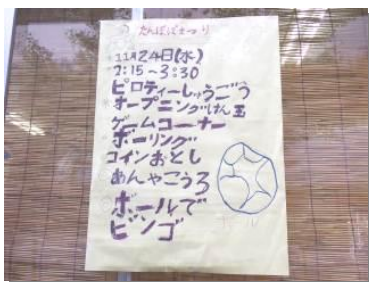 たんぽぽまつり
11月24日(水)
2:15〜3:30
ピロティーしゅうごう
オープニングけん玉
ゲームコーナー
ボーリング
コインおとし
あんやこうろ
ボールで
ビンゴ